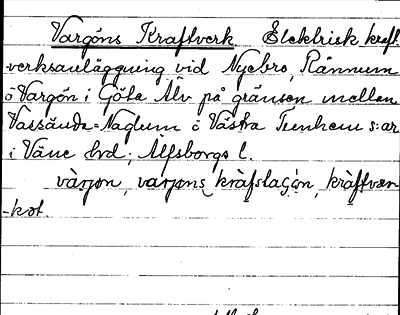 Vargöns Kraftverk Elektrisk kraft-
verksanläggning vid Nyebro, Rånnum
o Vargön i Göta Älv på gränsen mellan
Vassända-Naglum o Västra Tunhem s:ar
i Väne hrd, Älfsborgs l.
vàrjon, varjons kràfstasjon, kràftvær-
ket